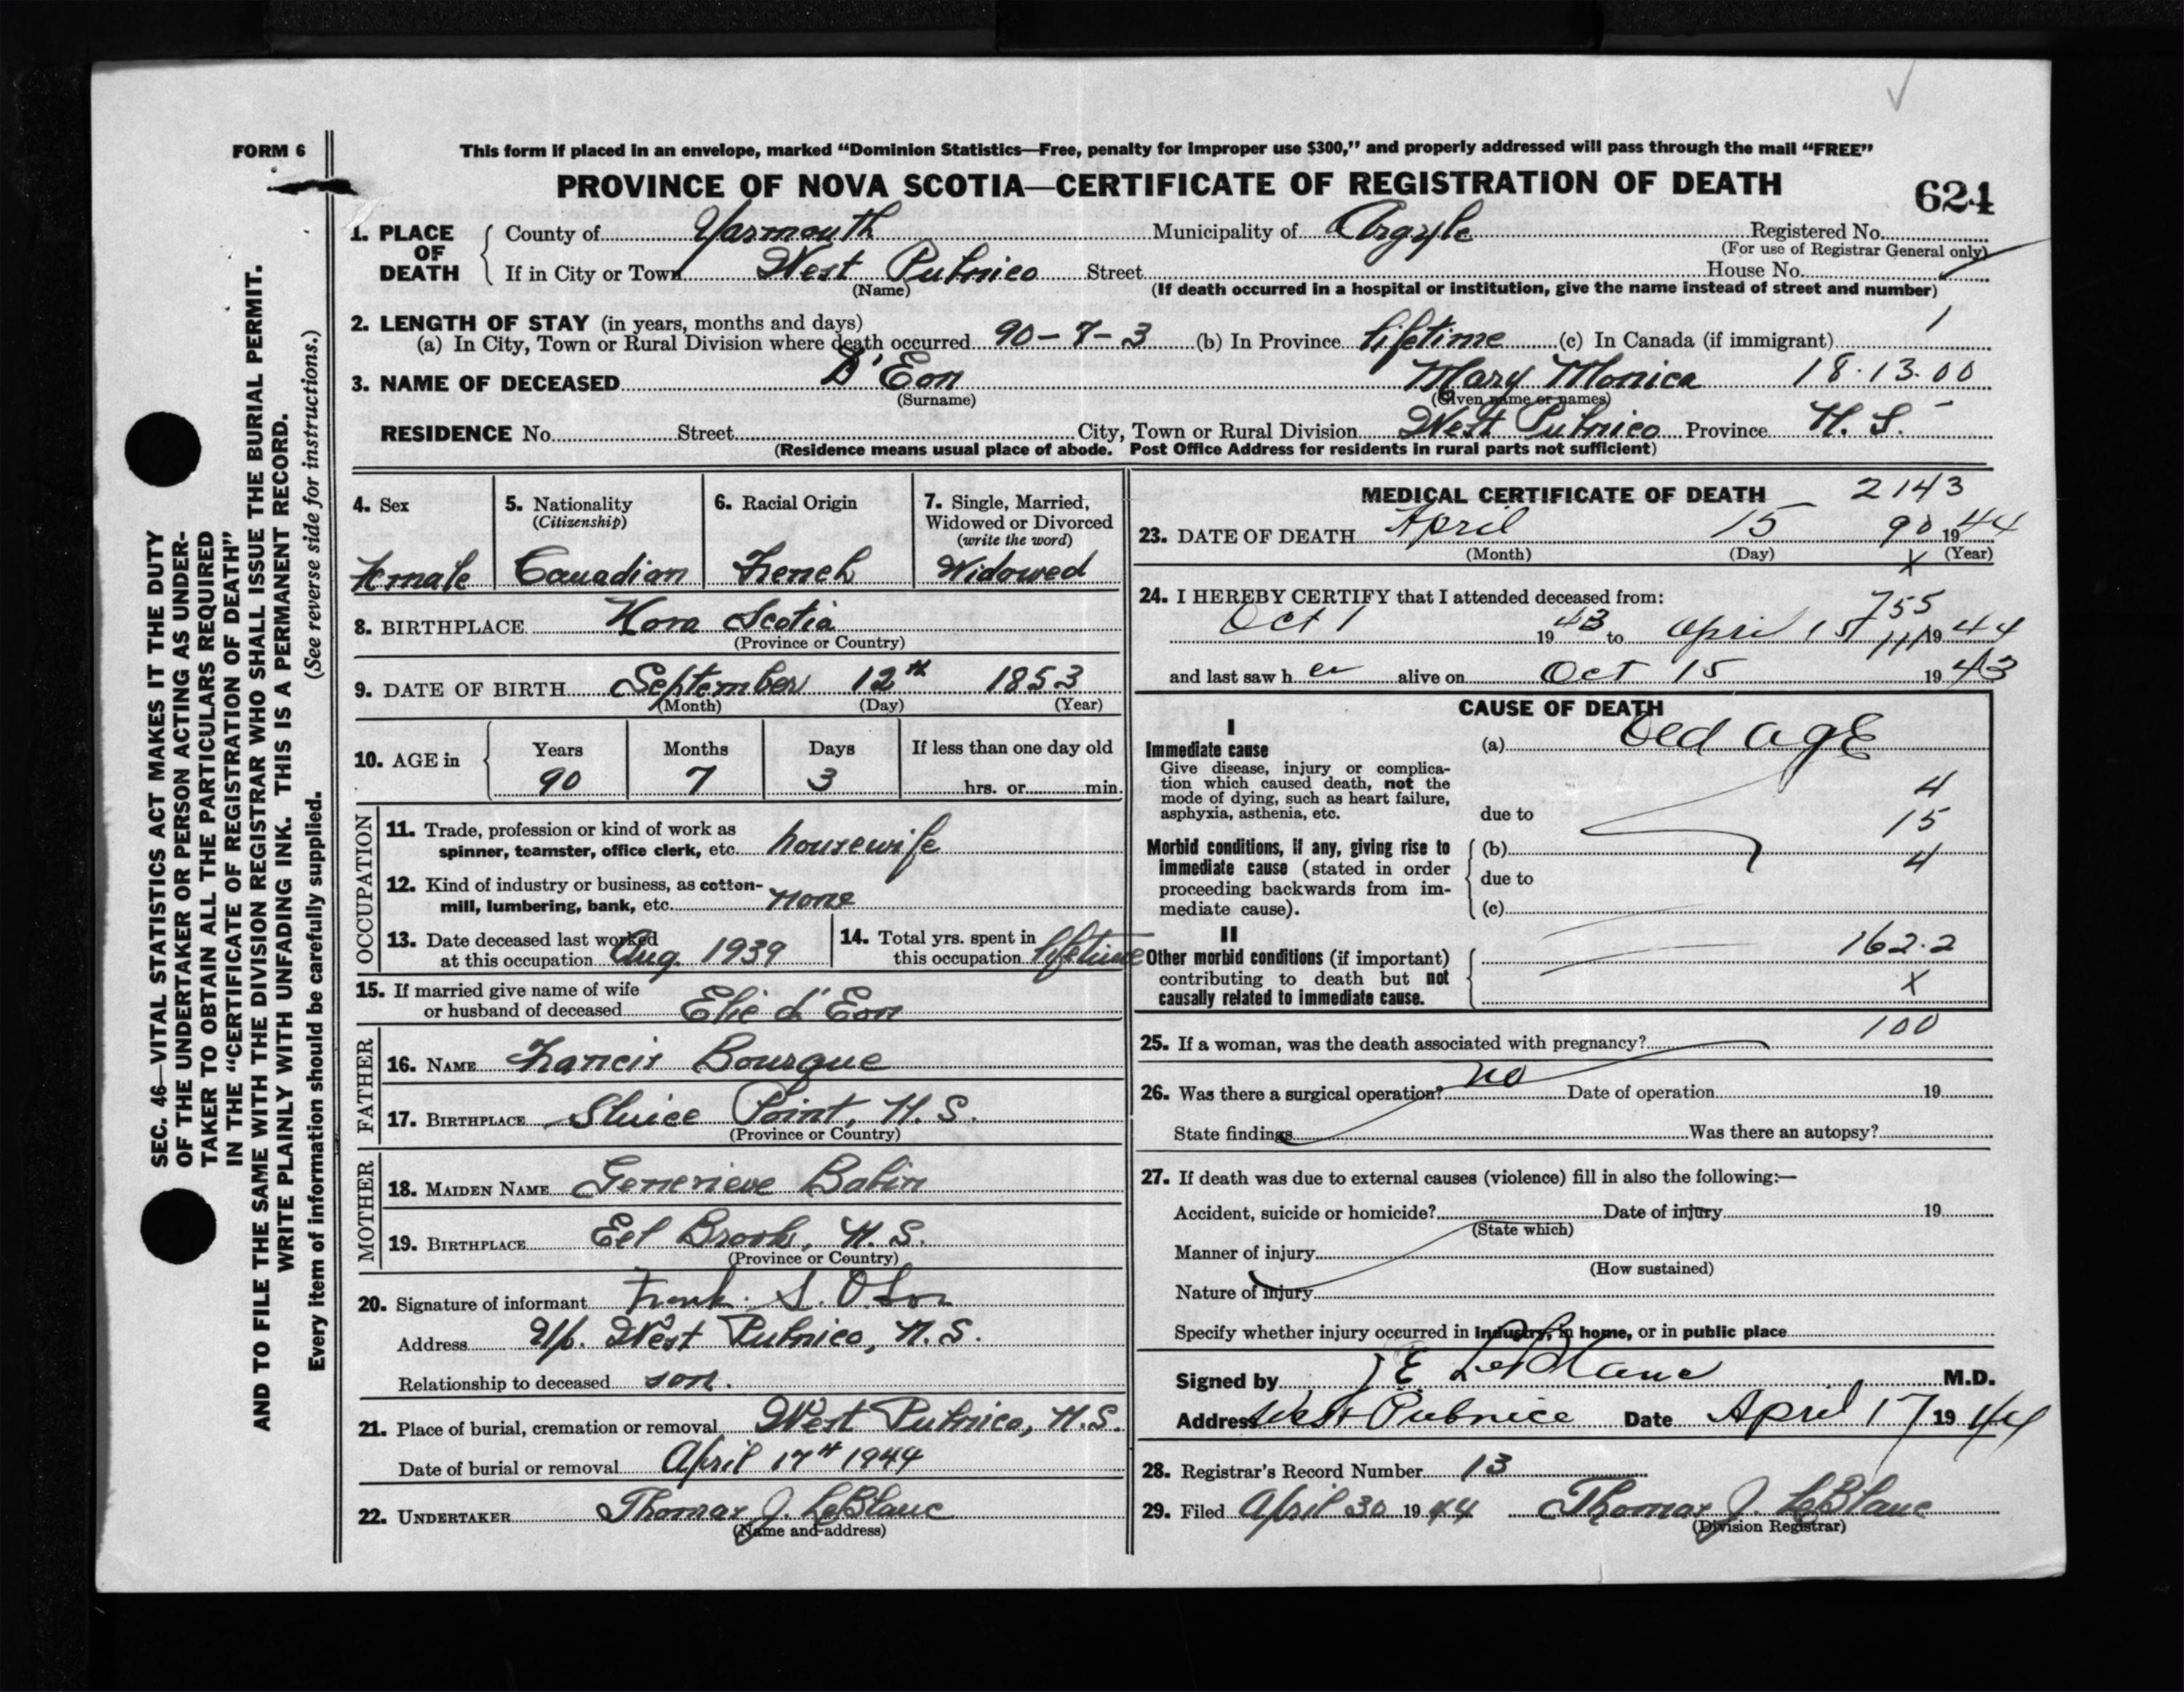 FORM 6
This form if placed in an envelope, marked “Dominion Statistics—Free, penalty for improper use $300,” and properly addressed will pass through the mail “FREE”
PROVINCE OF NOVA SCOTIA—CERTIFICATE OF REGISTRATION OF DEATH
624
1. PLACE OF DEATH
County of Yarmouth Municipality of Argyle Registered No.
(For use of Registrar General only)
If in City or Town West Pubnico Street House No.
(Name) (If death occurred in a hospital or institution, give the name instead of street and number)
2. LENGTH OF STAY (in years, months and days)
(a) In City, Town or Rural Division where death occurred 90-7-3 (b) In Province lifetime (c) In Canada (if immigrant) 1
3. NAME OF DECEASED D'Eon Mary Monica 18.13.00
(Surname) (Given name or names)
RESIDENCE No. Street City, Town or Rural Division West Pubnico Province N. S.
(Residence means usual place of abode. Post Office Address for residents in rural parts not sufficient)
4. Sex
Female
5. Nationality
(Citizenship)
Canadian
6. Racial Origin
French
7. Single, Married,
Widowed or Divorced
(write the word)
Widowed
8. BIRTHPLACE Nova Scotia
(Province or Country)
9. DATE OF BIRTH September 12th 1853
(Month) (Day) (Year)
10. AGE in Years Months Days If less than one day old
90 7 3 hrs. or min.
OCCUPATION
11. Trade, profession or kind of work as
spinner, teamster, office clerk, etc. housewife
12. Kind of industry or business, as cotton-
mill, lumbering, bank, etc. none
13. Date deceased last worked
at this occupation Aug. 1939
14. Total yrs. spent in
this occupation lifetime
15. If married give name of wife
or husband of deceased Elie d'Eon
FATHER
16. NAME Francis Bourque
17. BIRTHPLACE Sluice Point, N. S.
(Province or Country)
MOTHER
18. MAIDEN NAME Genevieve Babin
19. BIRTHPLACE Eel Brook, N. S.
(Province or Country)
20. Signature of informant Frank. S.
Address West Pubnico, N. S.
Relationship to deceased son.
21. Place of burial, cremation or removal West Pubnico, N.S.
Date of burial or removal April 17th 1944
22. UNDERTAKER Thomas J. LeBlanc
(Name and address)
MEDICAL CERTIFICATE OF DEATH 2143
23. DATE OF DEATH April 15 90 1944
(Month) (Day) X (Year)
24. I HEREBY CERTIFY that I attended deceased from:
755
Oct 1 1943 to April 15 1944
and last saw her alive on Oct 15 1943
CAUSE OF DEATH
I
Immediate cause
Give disease, injury or complica-
tion which caused death, not the
mode of dying, such as heart failure,
asphyxia, asthenia, etc.
(a) Old age
4
due to
15
Morbid conditions, if any, giving rise to
immediate cause (stated in order
proceeding backwards from im-
mediate cause).
(b)
4
due to
(c)
II
Other morbid conditions (if important)
contributing to death but not
causally related to immediate cause.
162.2
X
100
25. If a woman, was the death associated with pregnancy?
26. Was there a surgical operation? no Date of operation 19
State findings Was there an autopsy?
27. If death was due to external causes (violence) fill in also the following:—
Accident, suicide or homicide? Date of injury 19
(State which)
Manner of injury
(How sustained)
Nature of injury
Specify whether injury occurred in industry, in home, or in public place
Signed by J E LeBlanc M.D.
Address West Pubnico Date April 17 1944
28. Registrar's Record Number 13
29. Filed April 30 1944 Thomas J. LeBlanc
(Division Registrar)
SEC. 46—VITAL STATISTICS ACT MAKES IT THE DUTY
OF THE UNDERTAKER OR PERSON ACTING AS UNDER-
TAKER TO OBTAIN ALL THE PARTICULARS REQUIRED
IN THE “CERTIFICATE OF REGISTRATION OF DEATH”
AND TO FILE THE SAME WITH THE DIVISION REGISTRAR WHO SHALL ISSUE THE BURIAL PERMIT.
WRITE PLAINLY WITH UNFADING INK. THIS IS A PERMANENT RECORD.
Every item of information should be carefully supplied. (See reverse side for instructions.)